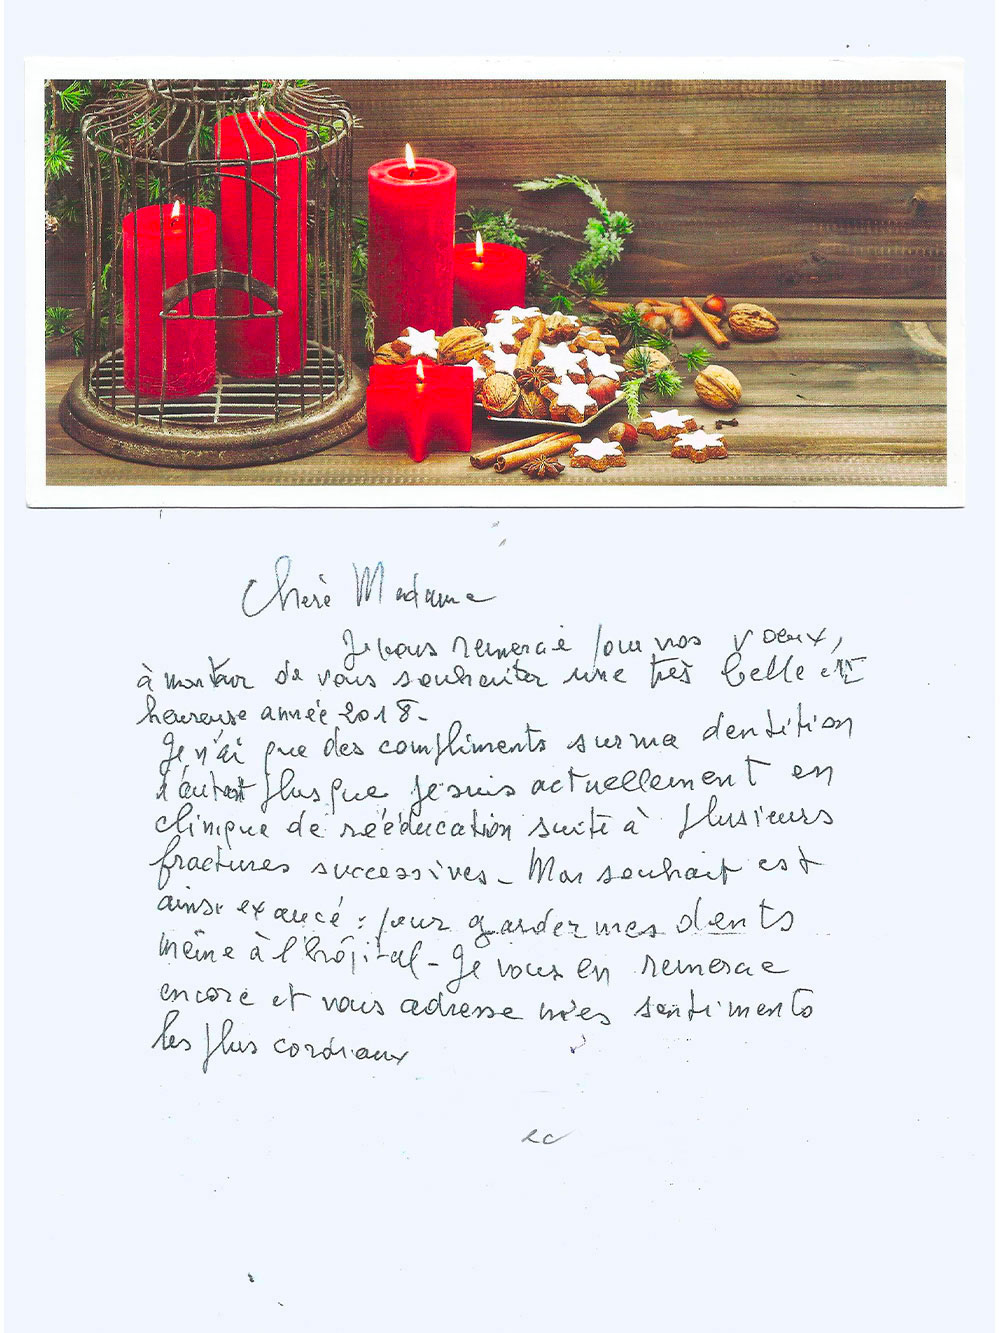 Chère Madame
Je vous remercie pour vos voeux,
à mon tour de vous souhaiter une très belle et
heureuse année 2018-
Je n'ai que des compliments sur ma dentition
d'autant plus que je suis actuellement en
clinique de rééducation suite à plusieurs
fractures successives - Mon souhait est
ainsi exaucé : pour garder mes dents
même à l'hôpital - Je vous en remercie
encore et vous adresse mes sentiments
les plus cordiaux